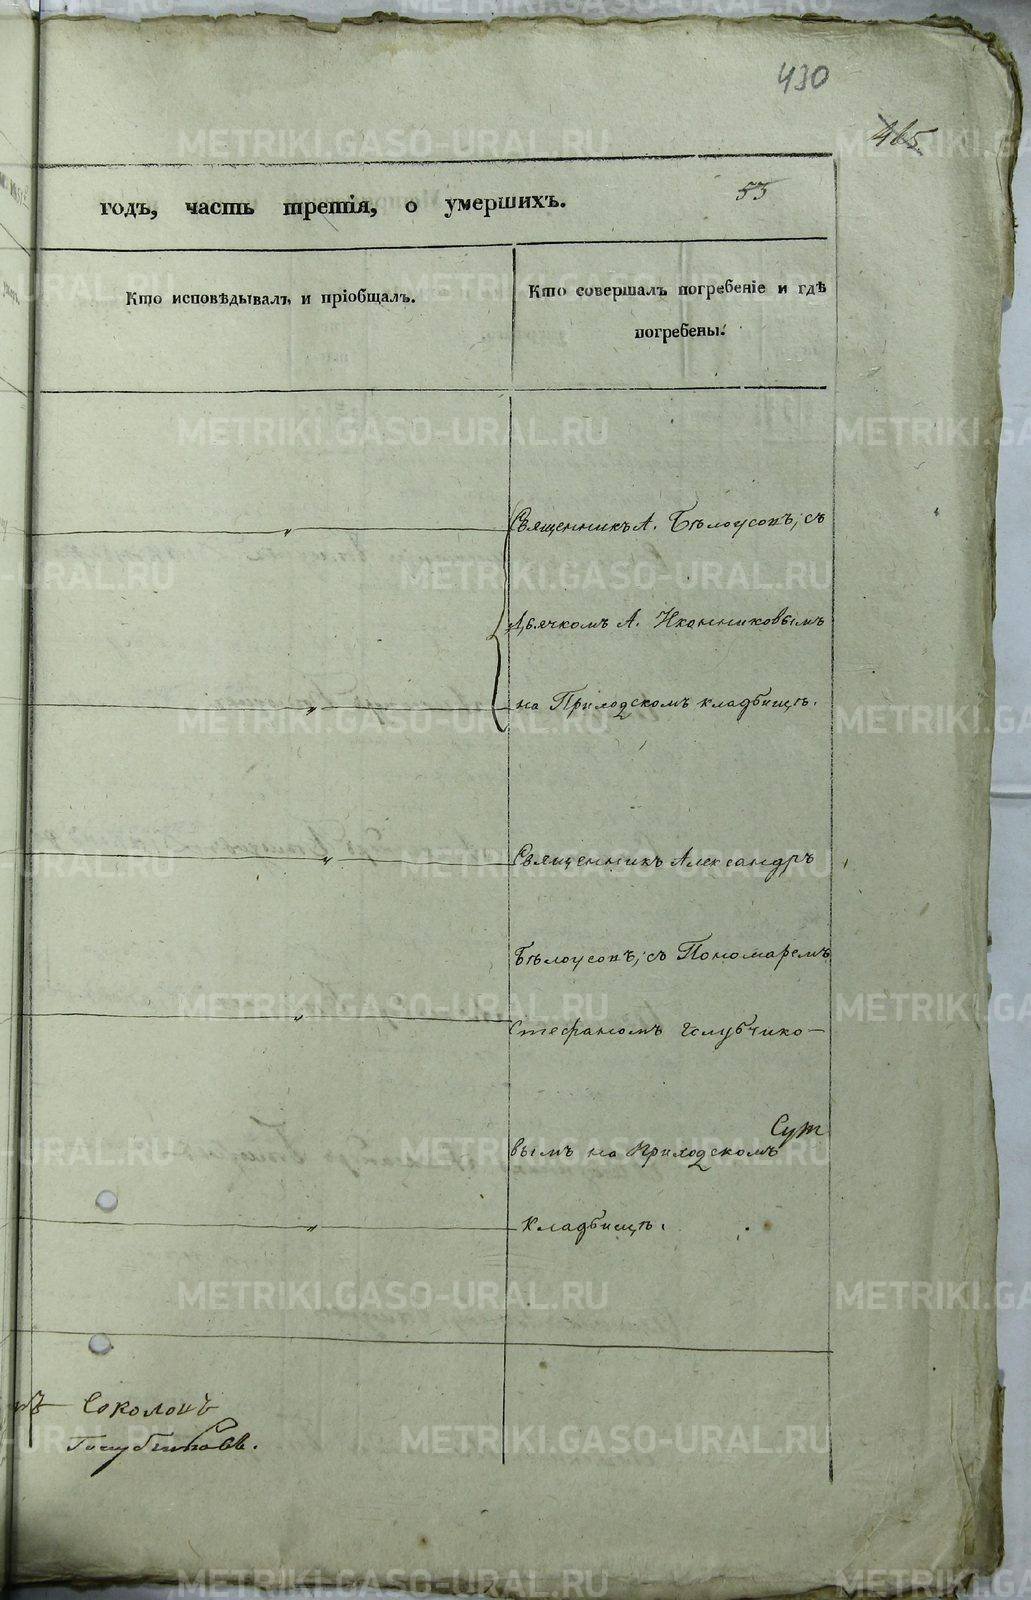 430
465
годъ, часть третія, о умершихъ.
53
Кто исповѣдывалъ и пріобщалъ.
Кто совершалъ погребеніе и гдѣ
погребены.
Священникъ А. Бѣлоусовъ, съ
Дьячкомъ А. Иконниковымъ
на Приходскомъ кладбищѣ.
Священникъ Александръ
Бѣлоусовъ, съ Пономаремъ
Стефаномъ Голубчико-
вымъ на Приходскомъ
кладбищѣ.
Соколовъ
Голубчиковъ.
METRIKI.GASO-URAL.RU